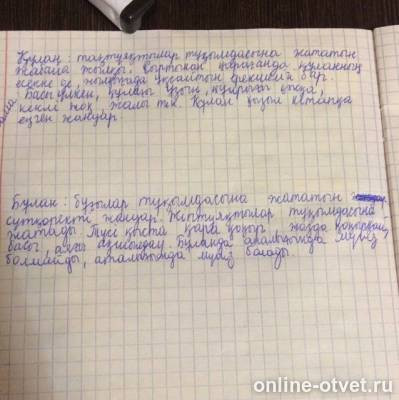 Құлан: тақтұяқтылар тұқымдасына жататын
жабайы жылқы. Сырттан қарағанда құланның
есекке де, жылқыға ұқсайтын ерекшелігі бар.
Басы үлкен, құлағы ұзын, құйрығы қысқа,
кекілі жоқ жалы тік. Құлан қызыл кітапқа
енген жануар.
Бұлан: бұғылар тұқымдасына жататын
сүтқоректі жануар. Жұптұяқтылар тұқымдасына
жатады. Түсі қыста қара қоңыр жазда
басы, аяғы ақшылдау. Бұланда аналығында мүйіз
болмайды, аталығында мүйіз болады.
online-otvet.ru